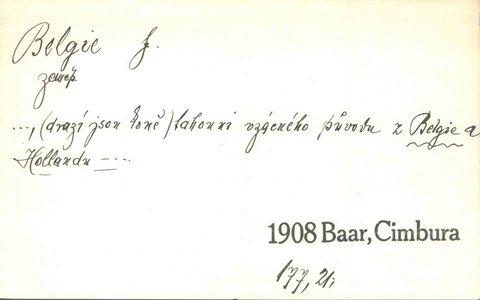 Belgie f.
zeměp.
..., (drazí jsou koně) tahouni vzácného původu z Belgie a
Hollandu - ...
1908 Baar, Cimbura
177, 21;